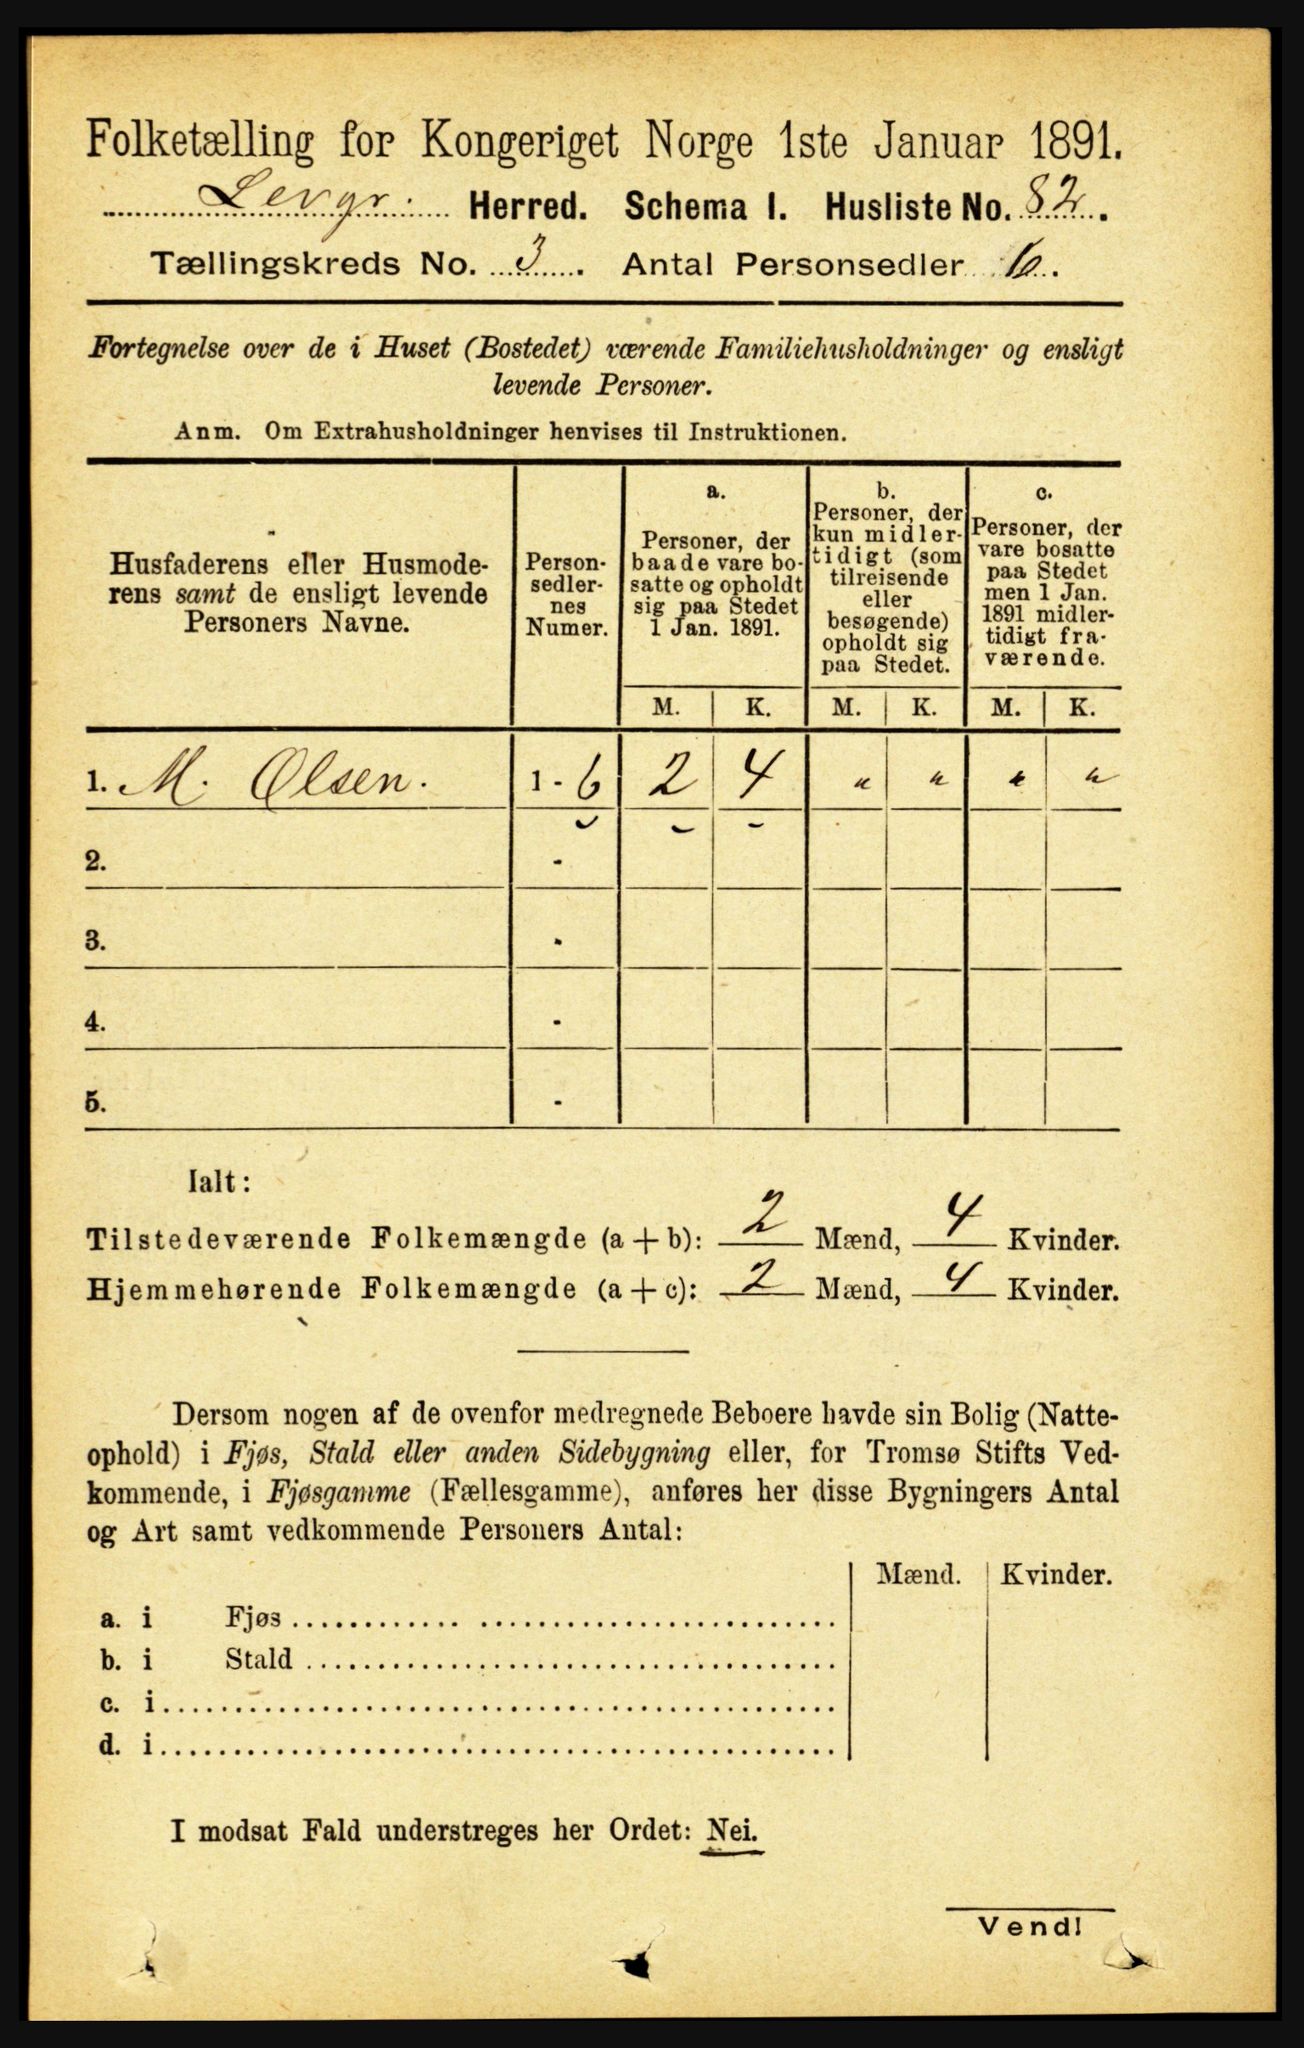 Folketælling for Kongeriget Norge 1ste Januar 1891.
Levgr. Herred. Schema I. Husliste No. 82.
Tællingskreds No. 3. Antal Personsedler 6.
Fortegnelse over de i Huset (Bostedet) værende Familiehusholdninger og ensligt
levende Personer.
Anm. Om Extrahusholdninger henvises til Instruktionen.
Husfaderens eller Husmode-
rens samt de ensligt levende
Personers Navne.
Person-
sedler-
nes
Numer.
a.
Personer, der
baade vare bo-
satte og opholdt
sig paa Stedet
1 Jan. 1891.
b.
Personer, der
kun midler-
tidigt (som
tilreisende
eller
besøgende)
opholdt sig
paa Stedet.
c.
Personer, der
vare bosatte
paa Stedet
men 1 Jan.
1891 midler-
tidigt fra-
værende.
M. K. M. K. M. K.
1. M. Olsen. 1 - 6 2 4 " " " "
2. -
3. -
4. -
5. -
Ialt:
Tilstedeværende Folkemængde (a + b): 2 Mænd, 4 Kvinder.
Hjemmehørende Folkemængde (a + c): 2 Mænd, 4 Kvinder.
Dersom nogen af de ovenfor medregnede Beboere havde sin Bolig (Natte-
ophold) i Fjøs, Stald eller anden Sidebygning eller, for Tromsø Stifts Ved-
kommende, i Fjøsgamme (Fællesgamme), anføres her disse Bygningers Antal
og Art samt vedkommende Personers Antal:
Mænd. Kvinder.
a. i Fjøs
b. i Stald
c. i
d. i
I modsat Fald understreges her Ordet: Nei.
Vend!